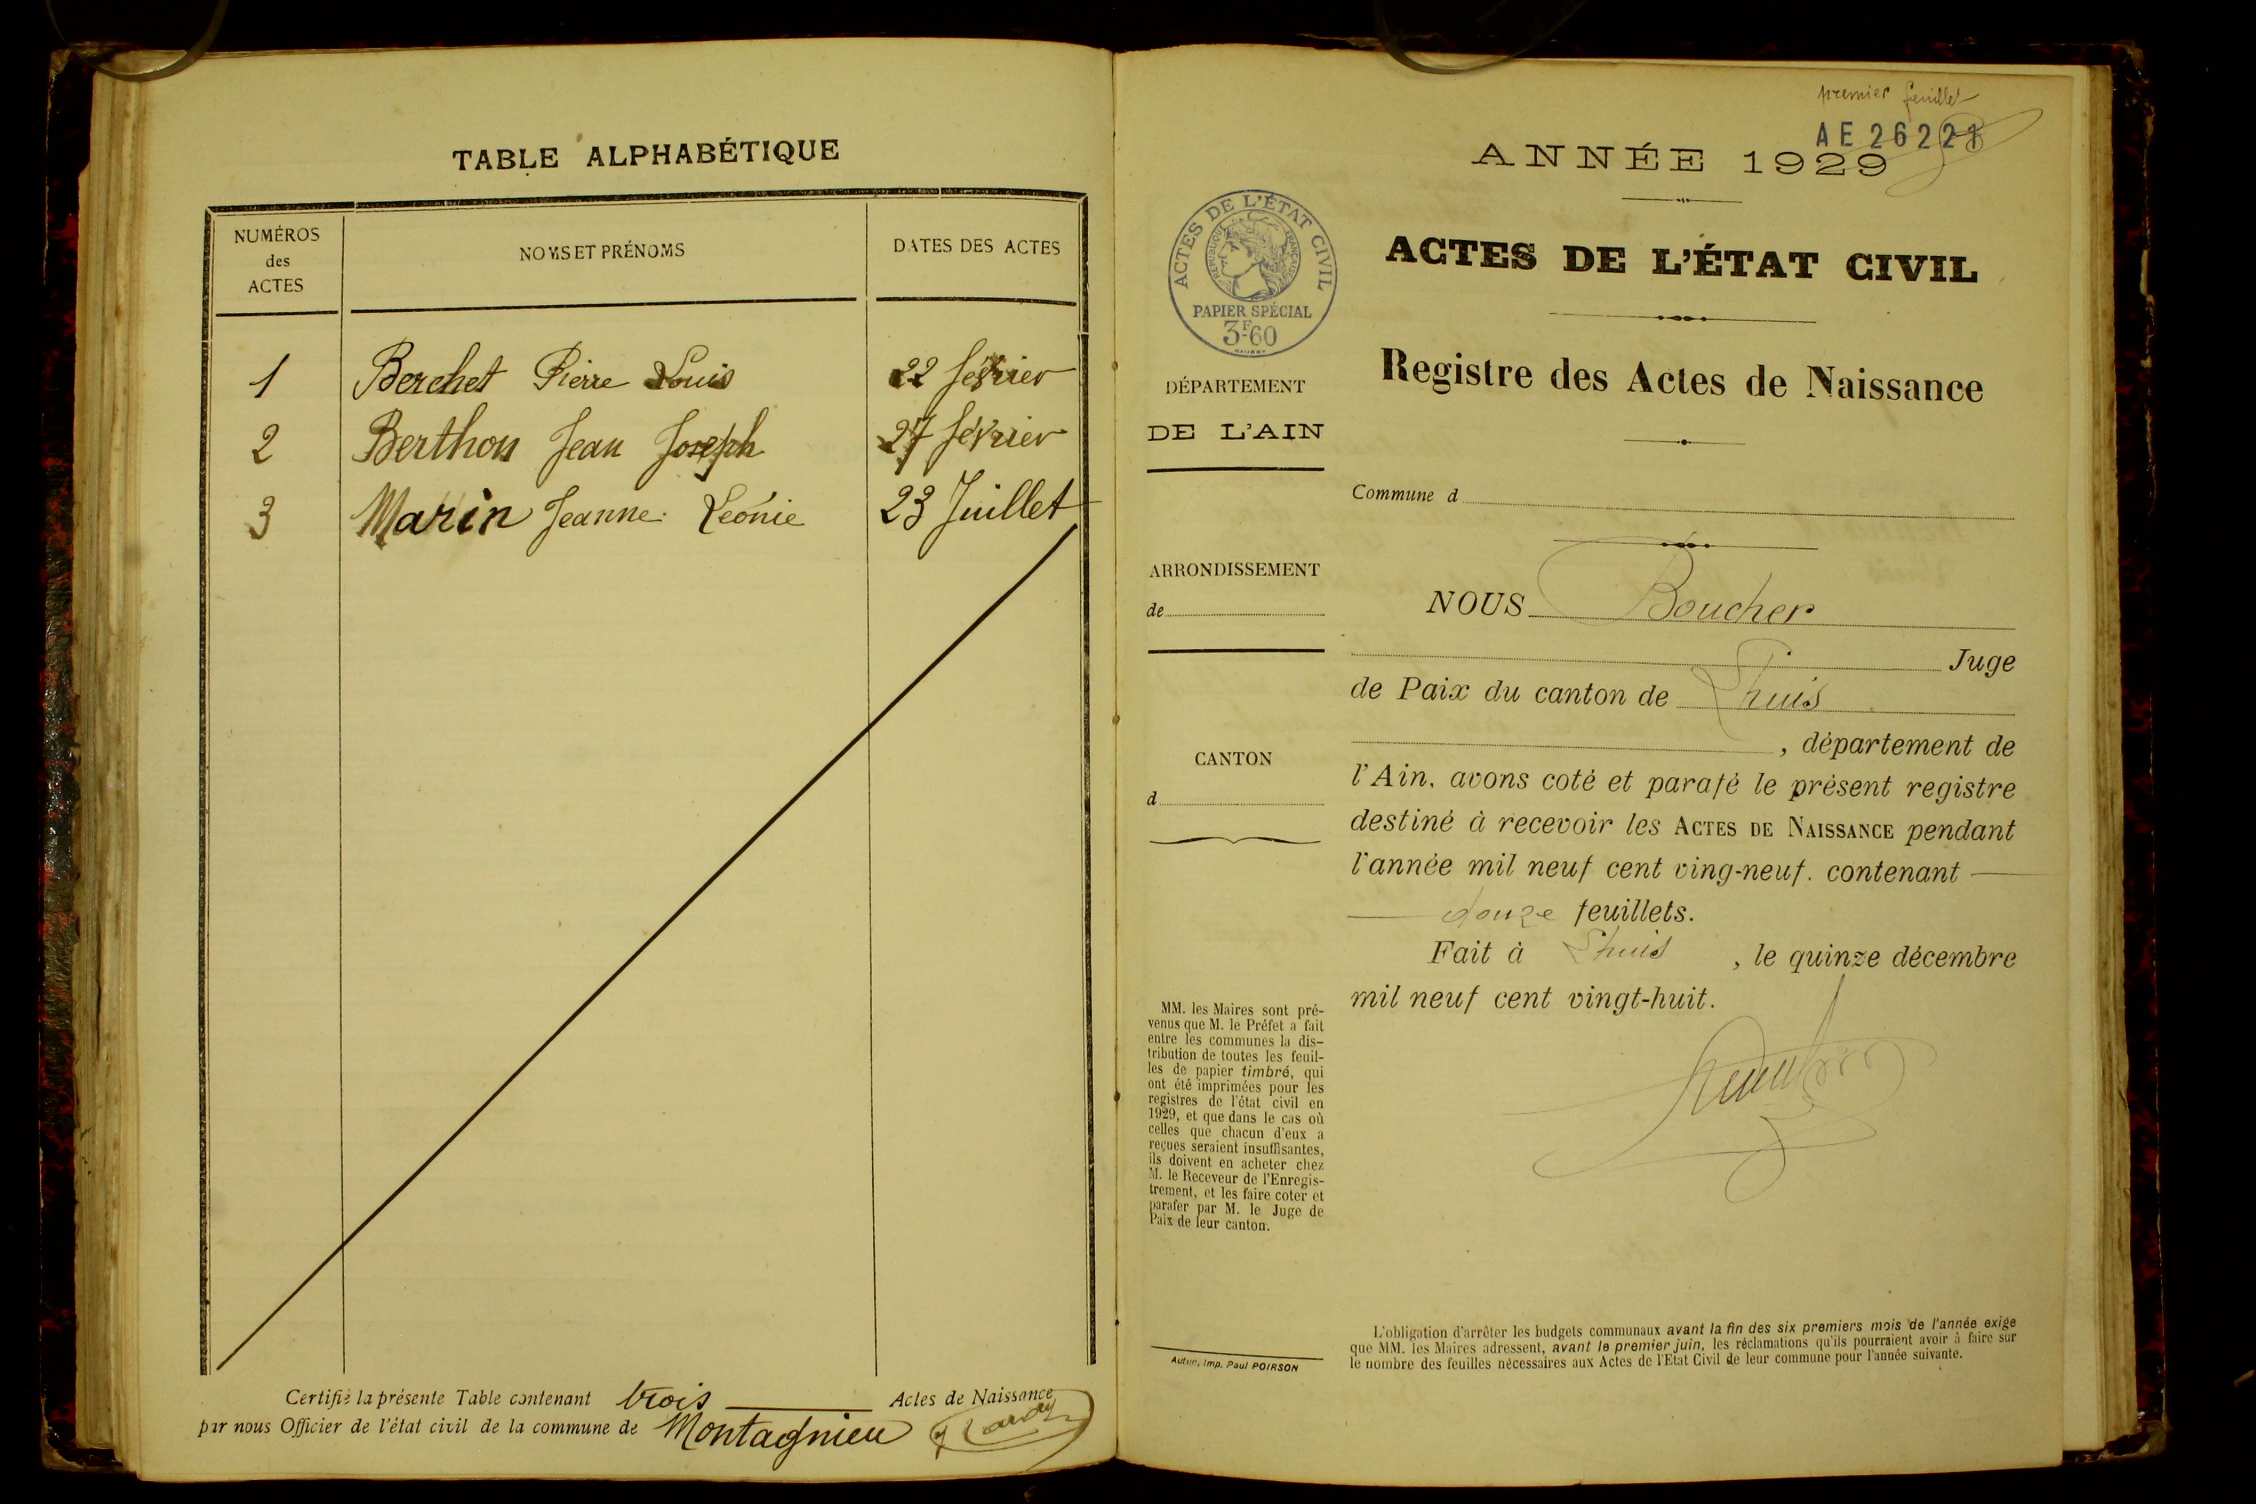 TABLE ALPHABÉTIQUE
NUMÉROS
des
ACTES
NOMS ET PRÉNOMS
DATES DES ACTES
1 Berchet Pierre Louis 22 février
2 Berthon Jean Joseph 27 février
3 Marin Jeanne Léonie 23 Juillet
Certifié la présente Table contenant trois Actes de Naissance
par nous Officier de l'état civil de la commune de Montagnieu
premier feuillet
AE 26221
ANNÉE 1929
ACTES DE L'ÉTAT CIVIL
RÉPUBLIQUE FRANÇAISE
PAPIER SPÉCIAL
3F60
ACTES DE L'ÉTAT CIVIL
Registre des Actes de Naissance
DÉPARTEMENT
DE L'AIN
Commune d
ARRONDISSEMENT
de
CANTON
d
NOUS Boucher
Juge
de Paix du canton de Lhuis
, département de
l'Ain, avons coté et parafé le présent registre
destiné à recevoir les ACTES DE NAISSANCE pendant
l'année mil neuf cent ving-neuf. contenant
douze feuillets.
Fait à Lhuis, le quinze décembre
mil neuf cent vingt-huit.
MM. les Maires sont pré-
venus que M. le Préfet a fait
entre les communes la dis-
tribution de toutes les feuil-
les de papier timbré, qui
ont été imprimées pour les
registres de l'état civil en
1929, et que dans le cas où
celles que chacun d'eux a
reçues seraient insuffisantes,
ils doivent en acheter chez
M. le Receveur de l'Enregis-
trement, et les faire coter et
parafer par M. le Juge de
Paix de leur canton.
Autun, Imp. Paul POIRSON
L'obligation d'arrêter les budgets communaux avant la fin des six premiers mois de l'année exige
que MM. les Maires adressent, avant le premier juin, les réclamations qu'ils pourraient avoir à faire sur
le nombre des feuilles nécessaires aux Actes de l'Etat Civil de leur commune pour l'année suivante.